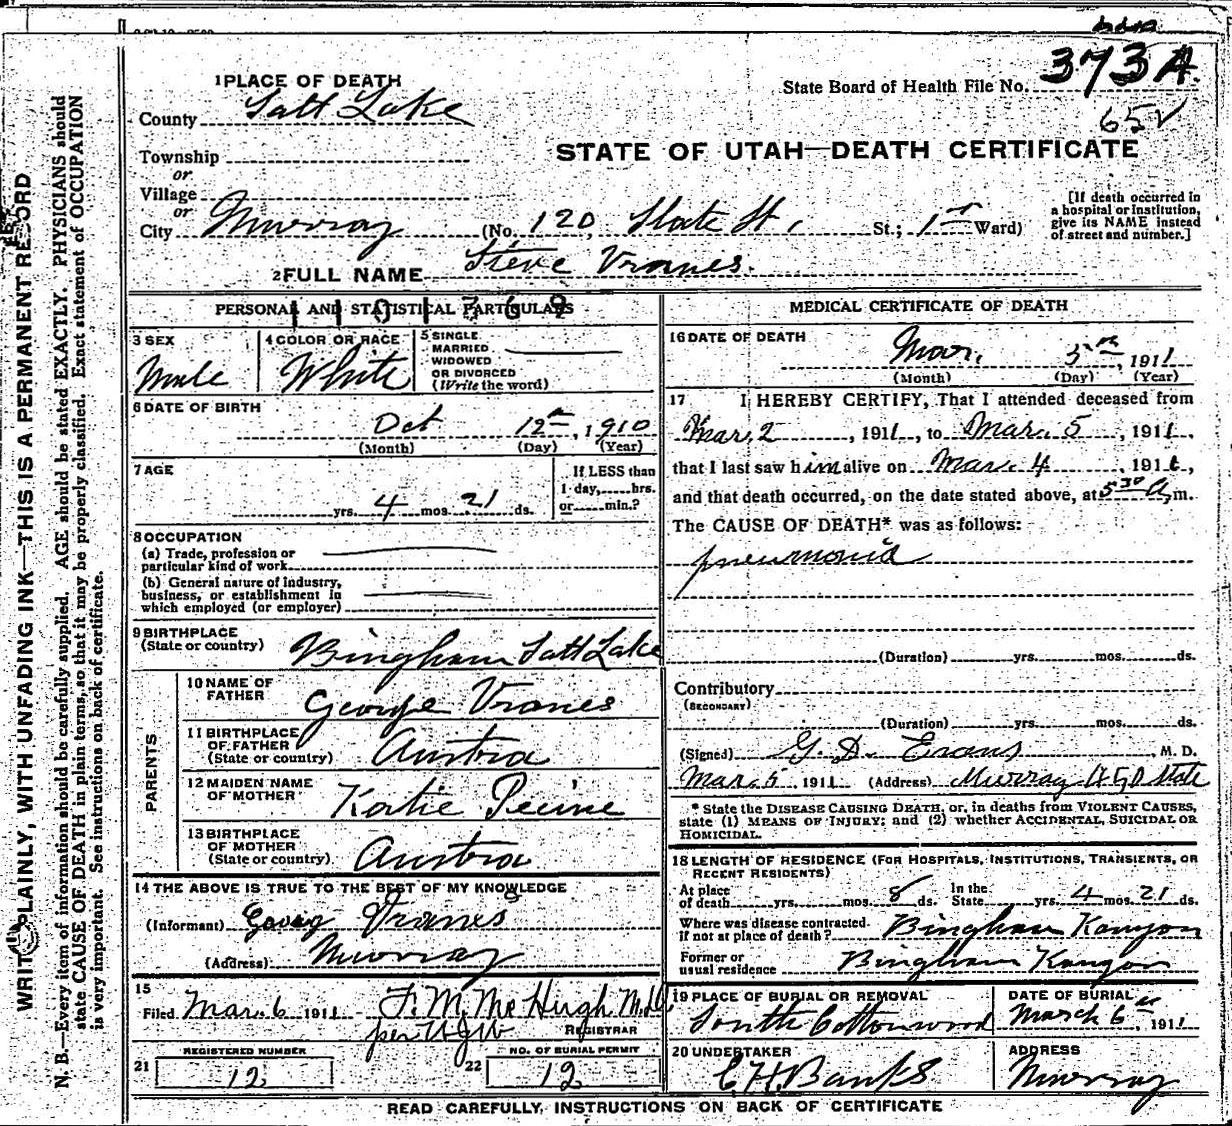 State Board of Health File No. 373 A
65 V
1 PLACE OF DEATH
County Salt Lake
STATE OF UTAH—DEATH CERTIFICATE
Township
or
Village
or
City Murray (No. 120, State St, St.; 1st Ward)
[If death occurred in
a hospital or institution,
give its NAME instead
of street and number.]
2 FULL NAME Steve Vranes.
PERSONAL AND STATISTICAL PARTICULARS
3 SEX
Male
4 COLOR OR RACE
White
5 SINGLE
MARRIED
WIDOWED
OR DIVORCED
(Write the word)
6 DATE OF BIRTH
Oct 12th, 1910
(Month) (Day) (Year)
7 AGE
yrs. 4 mos 21 ds.
If LESS than
1 day, hrs.
or min.?
8 OCCUPATION
(a) Trade, profession or
particular kind of work
(b) General nature of industry,
business, or establishment in
which employed (or employer)
9 BIRTHPLACE
(State or country) Bingham Salt Lake
PARENTS
10 NAME OF
FATHER George Vranes
11 BIRTHPLACE
OF FATHER
(State or country) Austra
12 MAIDEN NAME
OF MOTHER Katie
13 BIRTHPLACE
OF MOTHER
(State or country) Austra
14 THE ABOVE IS TRUE TO THE BEST OF MY KNOWLEDGE
(Informant) Vranes
(Address) Murray
15
Filed Mar. 6 1911 F. M. McHugh M.D.
per
REGISTRAR
21 REGISTERED NUMBER
12
22 NO. OF BURIAL PERMIT
12
MEDICAL CERTIFICATE OF DEATH
16 DATE OF DEATH
Mar. 5th, 1911
(Month) (Day) (Year)
17 I HEREBY CERTIFY, That I attended deceased from
Mar. 2, 1911, to Mar. 5, 1911,
that I last saw him alive on Mar. 4, 1911,
and that death occurred, on the date stated above, at 5 30 A. m.
The CAUSE OF DEATH* was as follows:
pneumonia
(Duration) yrs. mos. ds.
Contributory
(SECONDARY)
(Duration) yrs. mos. ds.
(Signed) G. D. Evans M. D.
Mar. 5 1911 (Address) Murray State
* State the DISEASE CAUSING DEATH, or, in deaths from VIOLENT CAUSES,
state (1) MEANS OF INJURY; and (2) whether ACCIDENTAL, SUICIDAL OR
HOMICIDAL.
18 LENGTH OF RESIDENCE (FOR HOSPITALS, INSTITUTIONS, TRANSIENTS, OR
RECENT RESIDENTS)
At place
of death yrs. mos. 8 ds. In the
State yrs. 4 mos. 21 ds.
Where was disease contracted
if not at place of death? Bingham Kanyon
Former or
usual residence Bingham Kanyon
19 PLACE OF BURIAL OR REMOVAL
South Cottonwood
DATE OF BURIAL
March 6th, 1911
20 UNDERTAKER
E H. Banks
ADDRESS
Murray
READ CAREFULLY, INSTRUCTIONS ON BACK OF CERTIFICATE
WRITE PLAINLY, WITH UNFADING INK—THIS IS A PERMANENT RECORD
N. B.—Every item of information should be carefully supplied. AGE should be stated EXACTLY. PHYSICIANS should
state CAUSE OF DEATH in plain terms, so that it may be properly classified. Exact statement of OCCUPATION
is very important. See instructions on back of certificate.